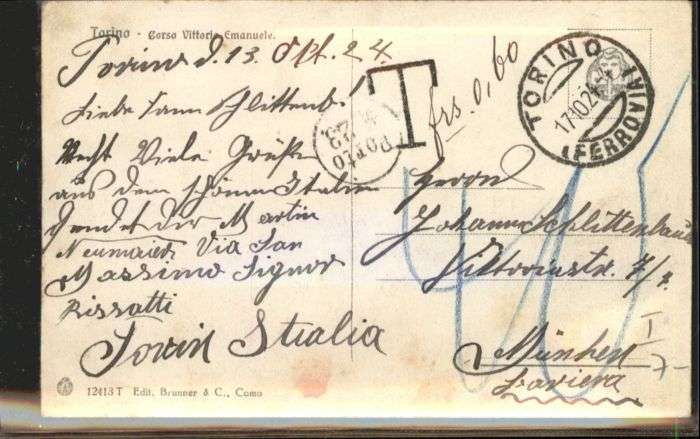 Torino - Corso Vittorio Emanuele.
Torino d. 13. Okt. 24.
Liebe Fam Schlittenb!
Recht Viele Grüße
aus dem schönen Italien
sendet der Martin
Neumaier Via San
Massimo Signor
Rissatti
Torin Italia
T
frs. 0,60
PORTO
23
TORINO
17.10.24
(FERROVIA)
Herrn
Johann Schlittenbau
Viktoriastr. 7/
I
München
Baviera
40
12413 T Edit. Brunner & C., Como